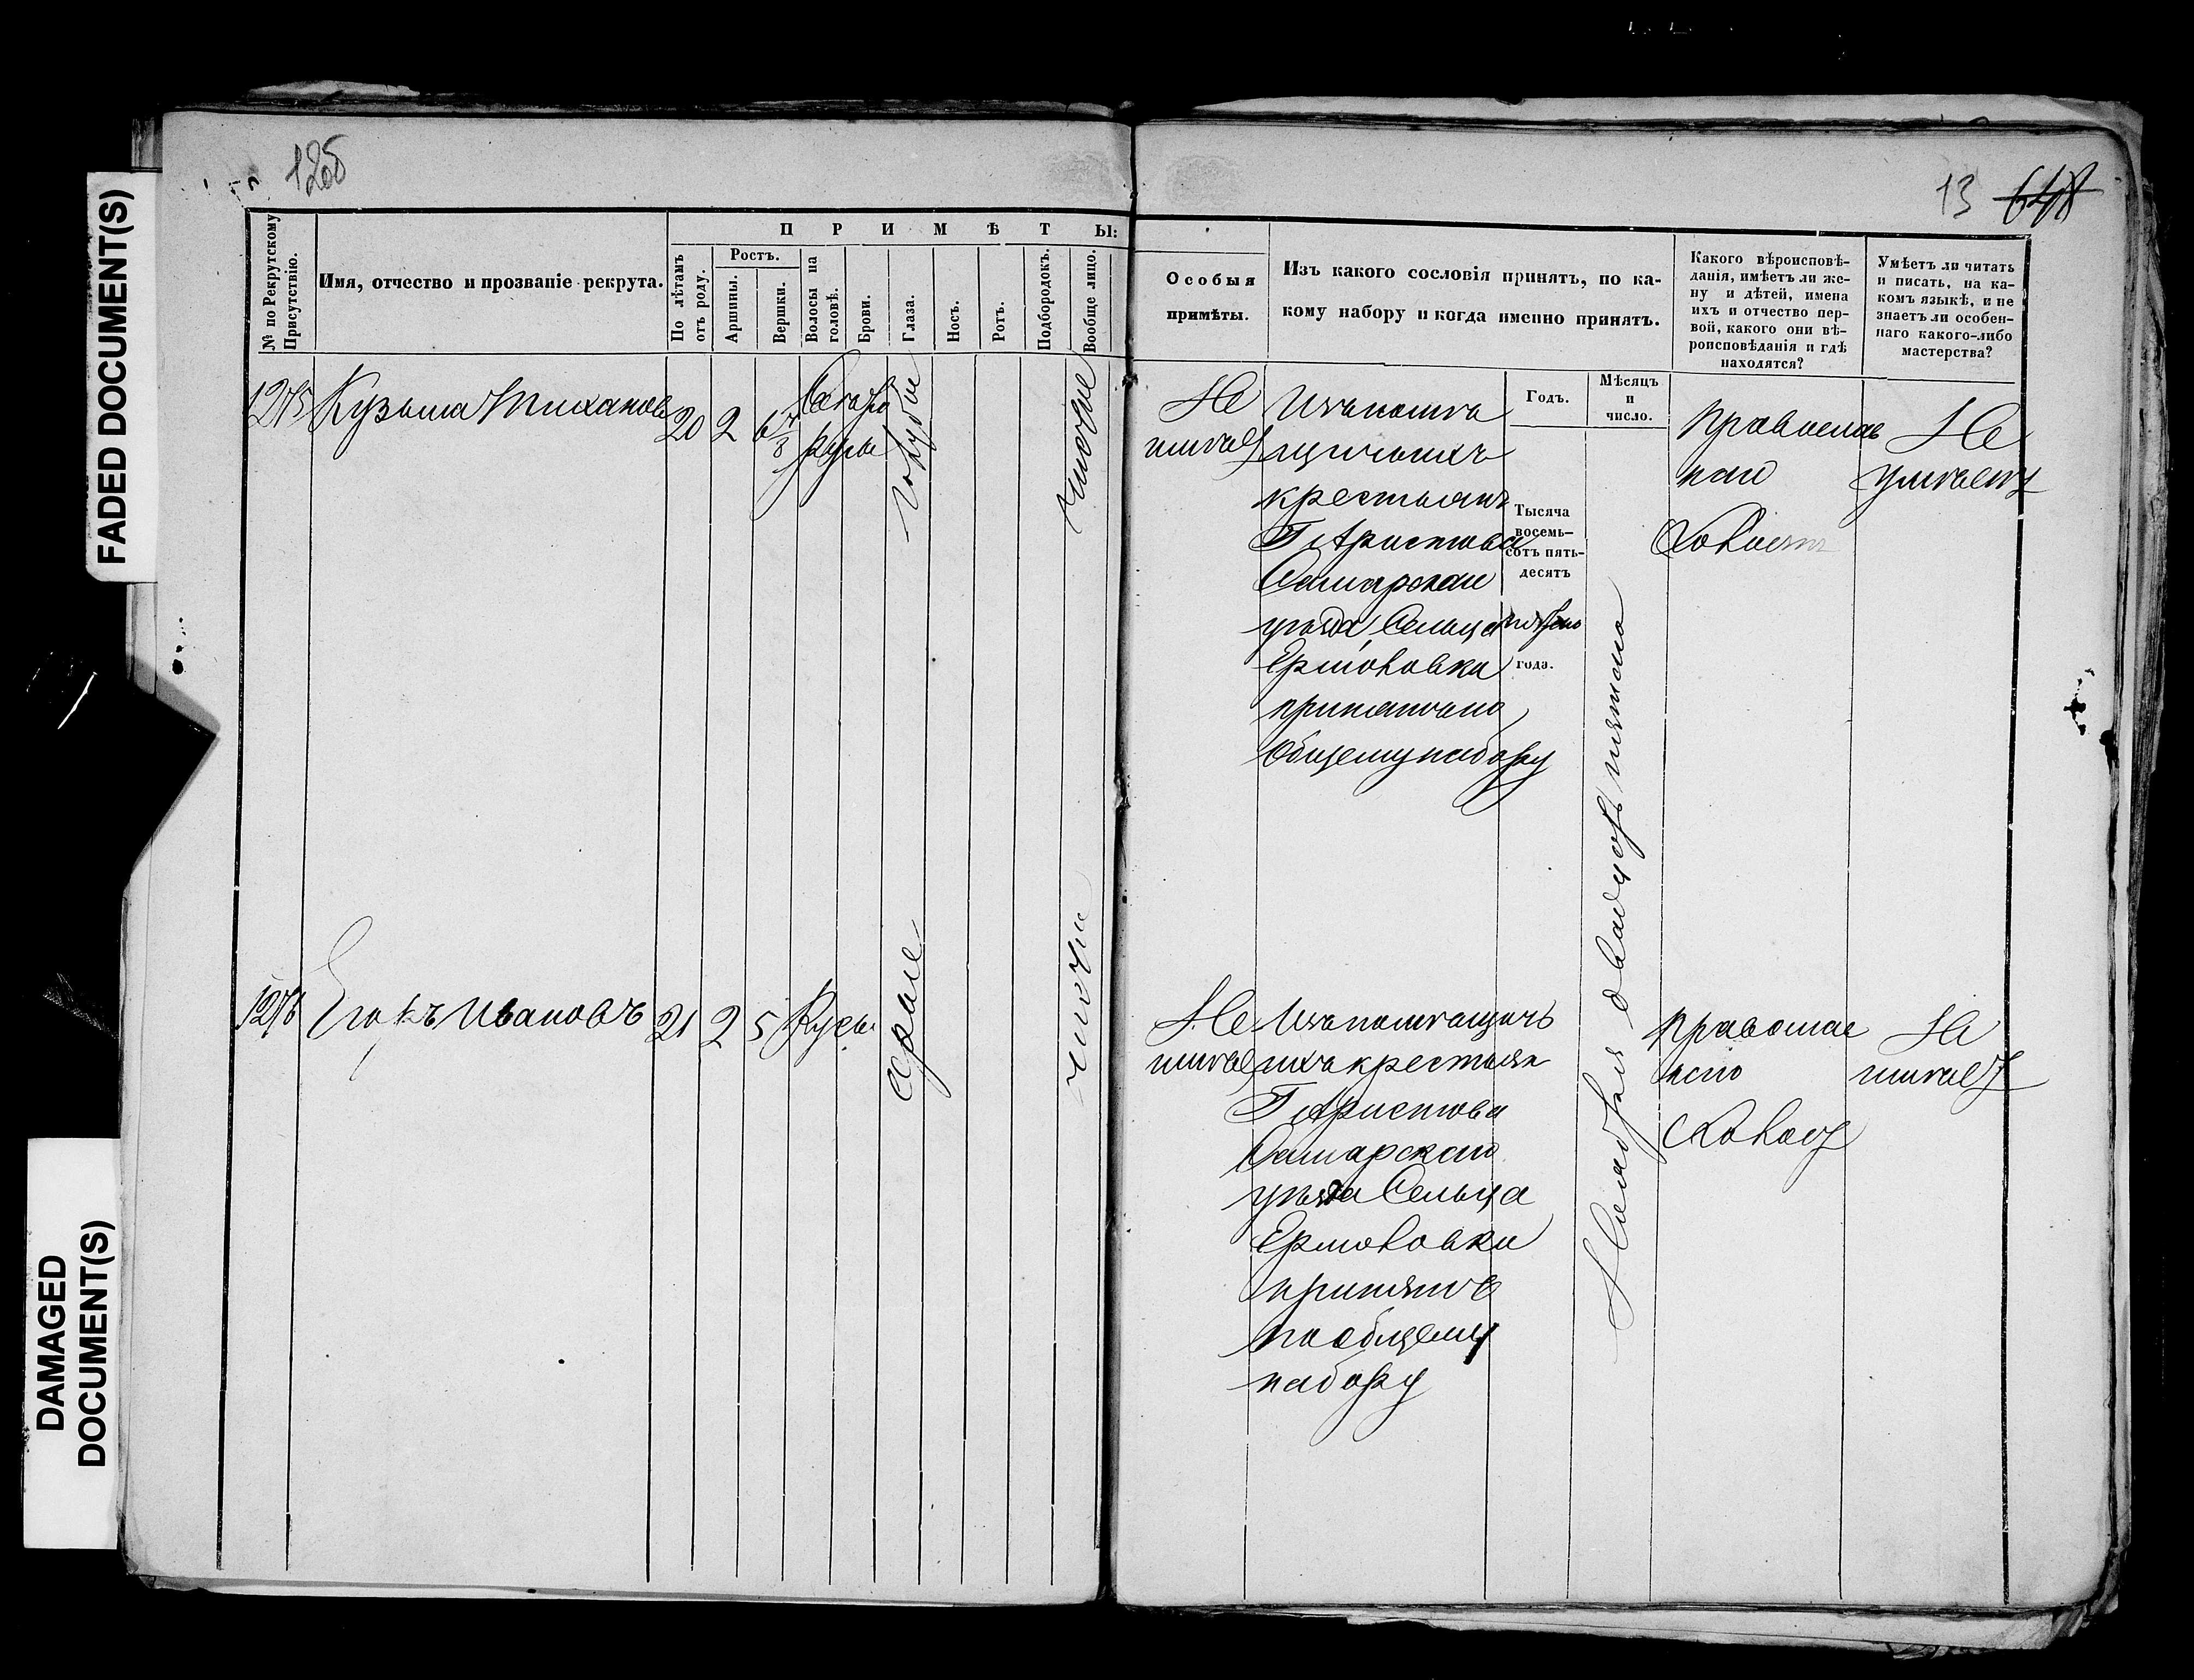 FADED DOCUMENT(S)
DAMAGED
DOCUMENT(S)
126
№ по Рекрутскому
Присутствію.
Имя, отчество и прозваніе рекрута.
П Р И М Ѣ Т Ы:
По лѣтамъ
отъ роду.
Ростъ.
Аршины.
Вершки.
Волосы на
головѣ.
Брови.
Глаза.
Носъ.
Ротъ.
Подбородокъ.
Вообще лицо.
1275
Кузьма Тихановъ
20
2
6 7/8
Свѣтло
русы
голубые
чистое
1276
Егоръ Ивановъ
21
2
5
Русы
Серые
чистое
13 648
Особыя
примѣты.
Изъ какого сословія принятъ, по ка-
кому набору и когда именно принятъ.
Какого вѣроисповѣ-
данія, имѣетъ ли же-
ну и дѣтей, имена
ихъ и отчество пер-
вой, какого они вѣ-
роисповѣданія и гдѣ
находятся?
Умѣетъ ли читать
и писать, на ка-
комъ языкѣ, и не
знаетъ ли особен-
наго какого-либо
мастерства?
Годъ.
Мѣсяцъ
и
число.
Не
имѣетъ
Изъ помѣ
щичьихъ
крестьянъ
Г Аристова
Самарскаго
уѣзда, Сельца
Ермоловки
принятъ по
Общему набору
Тысяча
восемь-
сотъ пять-
десятъ
года.
Ноября двадцать пятаго
Православ
наго
Холостъ
Не
умѣетъ
Не
имѣетъ
Изъ помѣщичь
ихъ крестьян
Г Аристова
Самарскаго
уѣзда Сельца
Ермоловки
принятъ
по общему
набору
Православ
наго
Холостъ
Не
имѣетъ